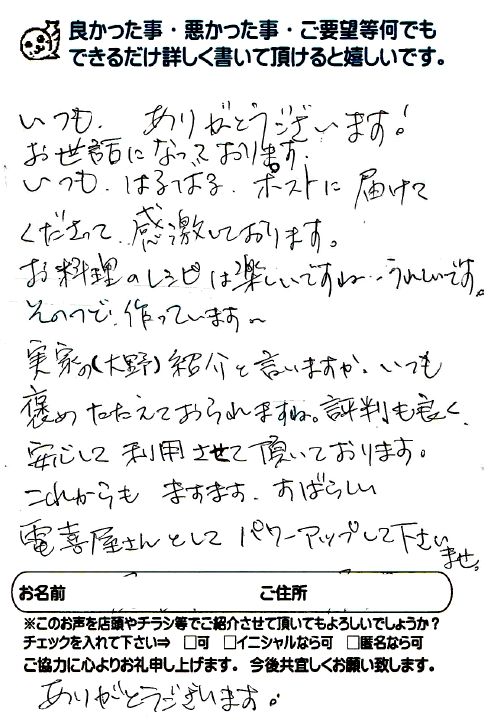 良かった事・悪かった事・ご要望等何でも
できるだけ詳しく書いて頂けると嬉しいです。
いつも、ありがとうございます!
お世話になっております。
いつも、はるばる、ポストに届けて
くださって、感激しております。
お料理のレシピは楽しいですね、うれしいです。
そのつど、作っています〜
実家の(大野)紹介と言いますか、いつも
褒めたたえておられますね。評判も良く、
安心して利用させて頂いております。
これからも ますます、すばらしい
電喜屋さんとして パワーアップして下さい
ませ。
お名前 ご住所
※このお声を店頭やチラシ等でご紹介させて頂いてもよろしいでしょうか?
チェックを入れて下さい⇒ □可 □イニシャルなら可 □匿名なら可
ご協力に心よりお礼申し上げます。 今後共宜しくお願い致します。
ありがとうございます。